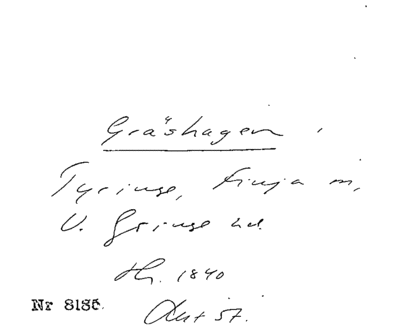 Gräshagen,
Tyringe, Finja m,
V. Göinge hd.
Hr. 1840
Nr 8185.